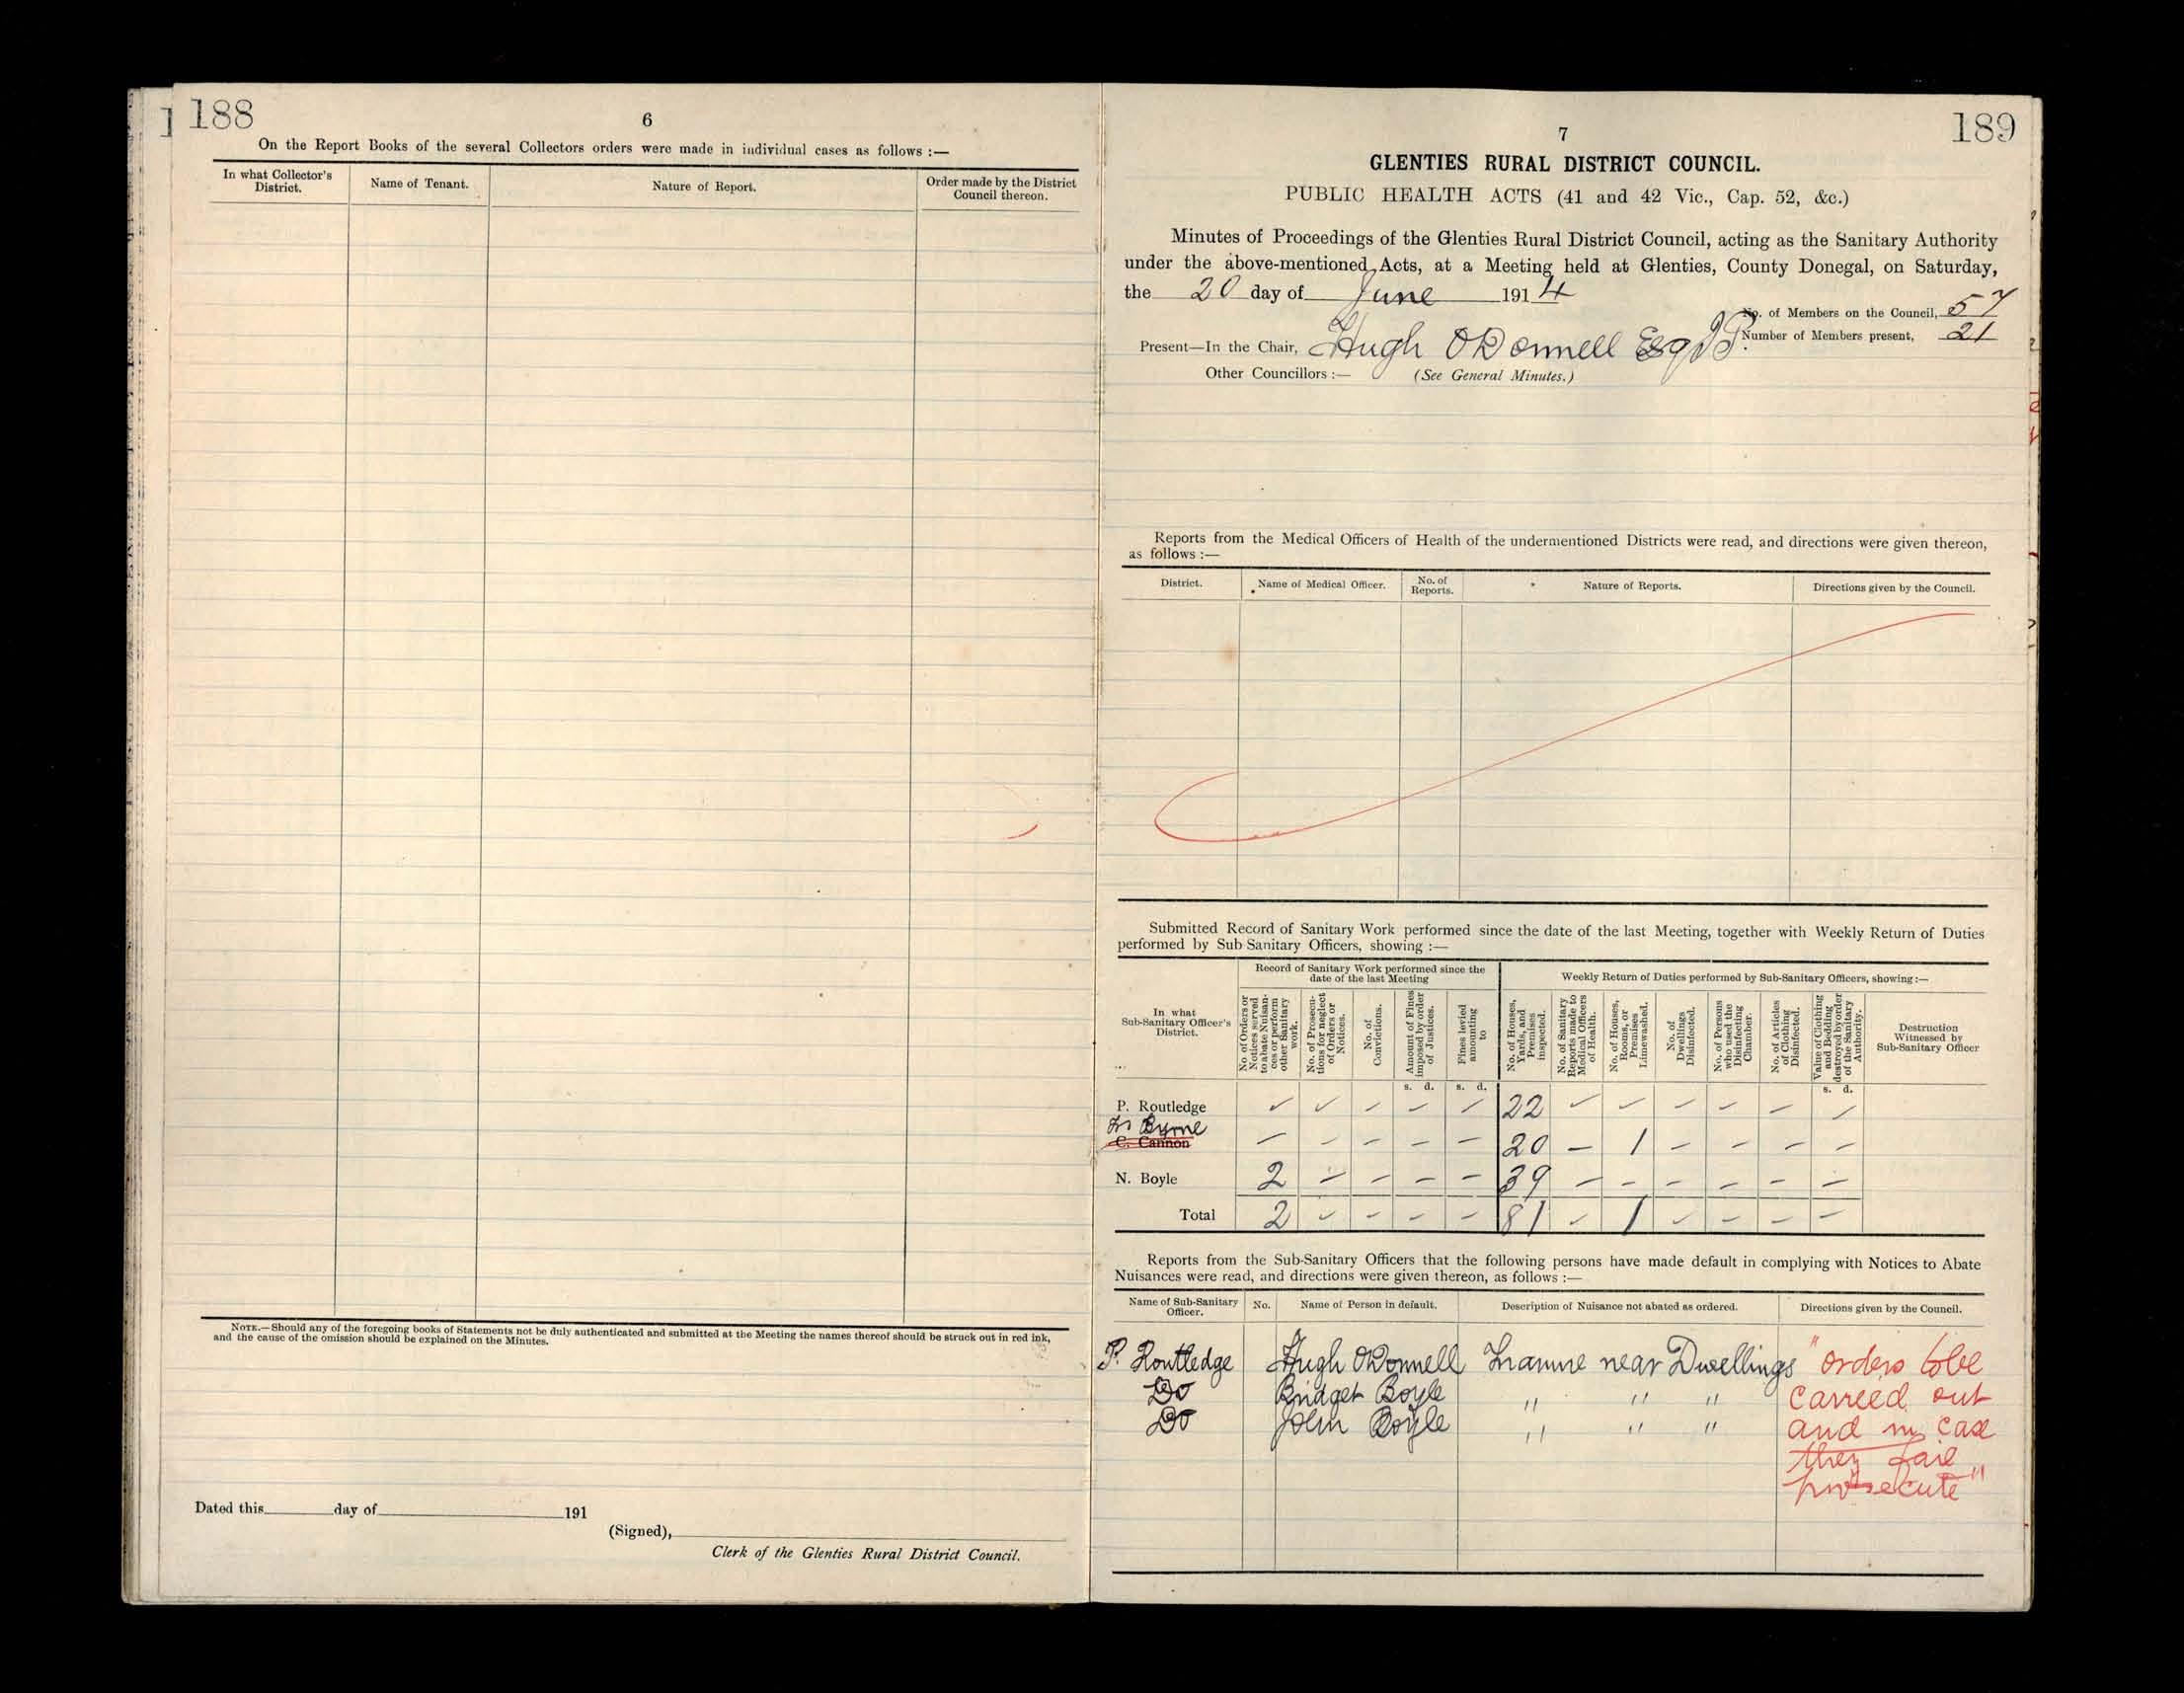 188
6
On the Report Books of the several Collectors orders were made in individual cases as follows :—
In what Collector's District.
Name of Tenant.
Nature of Report.
Order made by the District Council thereon.
NOTE.—Should any of the foregoing books of Statements not be duly authenticated and submitted at the Meeting the names thereof should be struck out in red ink,
and the cause of the omission should be explained on the Minutes.
Dated this day of 191
(Signed),
Clerk of the Glenties Rural District Council.
189
7
GLENTIES RURAL DISTRICT COUNCIL.
PUBLIC HEALTH ACTS (41 and 42 Vic., Cap. 52, &c.)
Minutes of Proceedings of the Glenties Rural District Council, acting as the Sanitary Authority
under the above-mentioned Acts, at a Meeting held at Glenties, County Donegal, on Saturday,
the 20 day of June 1914
No. of Members on the Council, 57
Present—In the Chair, Hugh ODonnell Esq JP. Number of Members present, 21
Other Councillors :— (See General Minutes.)
Reports from the Medical Officers of Health of the undermentioned Districts were read, and directions were given thereon,
as follows :—
District.
Name of Medical Officer.
No. of Reports.
Nature of Reports.
Directions given by the Council.
Submitted Record of Sanitary Work performed since the date of the last Meeting, together with Weekly Return of Duties
performed by Sub Sanitary Officers, showing :—
In what Sub-Sanitary Officer's District.
Record of Sanitary Work performed since the date of the last Meeting
Weekly Return of Duties performed by Sub-Sanitary Officers, showing :—
No. of Orders or Notices served to abate Nuisances or perform other Sanitary work.
No. of Prosecutions for neglect of Orders or Notices.
No. of Convictions.
Amount of Fines imposed by order of Justices.
Fines levied amounting to
No. of Houses, Yards, and Premises inspected.
No. of Sanitary Reports made to Medical Officers of Health.
No. of Houses, Rooms, or Premises Limewashed.
No. of Dwellings Disinfected.
No. of Persons who used the Disinfecting Chamber.
No. of Articles of Clothing Disinfected.
Value of Clothing and Bedding destroyed by order of the Sanitary Authority.
Destruction Witnessed by Sub-Sanitary Officer
s. d. s. d. s. d.
P. Routledge ✓ ✓ – – – 22 ✓ – – – – –
Byrne
C. Cannon – – – – – 20 – 1 – – – –
N. Boyle 2 – – – – 39 – – – – – –
Total 2 ✓ – – – 81 ✓ 1 ✓ – – –
Reports from the Sub-Sanitary Officers that the following persons have made default in complying with Notices to Abate
Nuisances were read, and directions were given thereon, as follows :—
Name of Sub-Sanitary Officer.
No.
Name of Person in default.
Description of Nuisance not abated as ordered.
Directions given by the Council.
P. Routledge Hugh ODonnell Manure near Dwellings "orders to be
Do Bridget Boyle " " " carried out
Do John Boyle " " " and in case
they fail
prosecute"